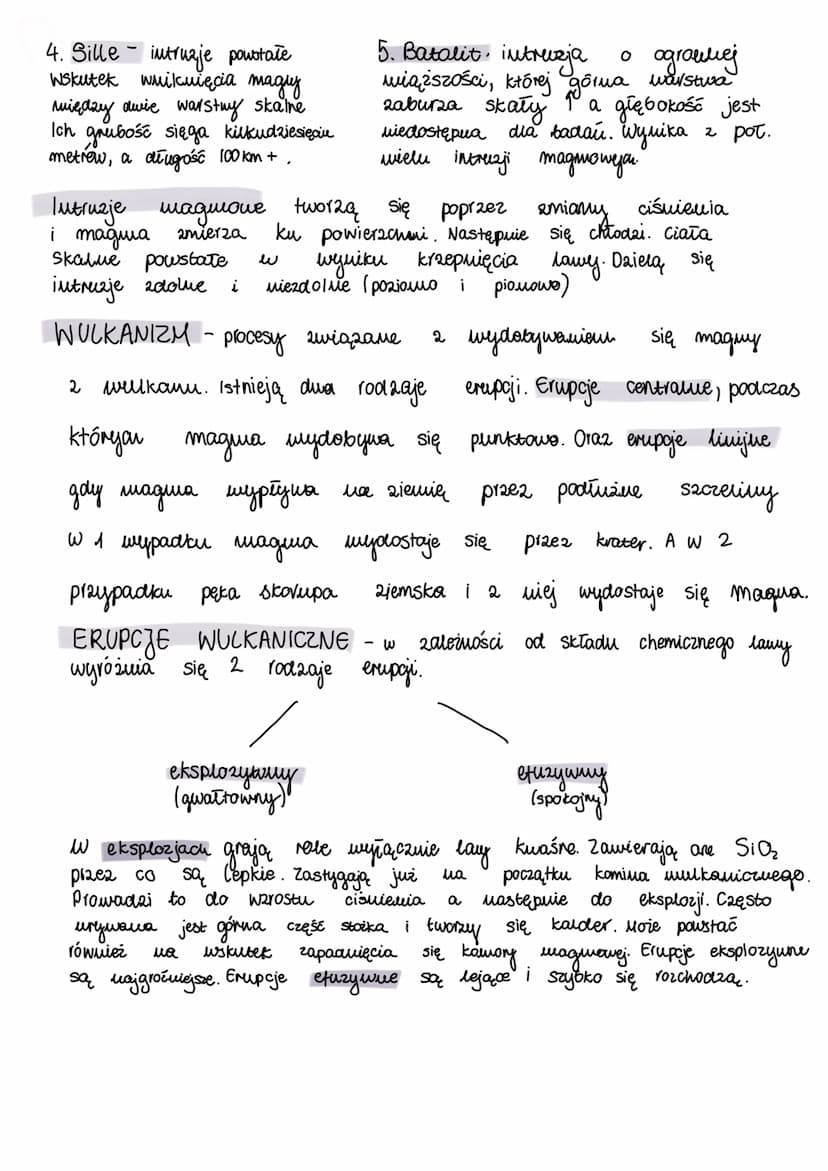 4. Sille - intruzje powstałe
wskutek wniknięcia magmy
między dwie warstwy skalne
Ich grubość sięga kilkudziesięciu
metrów, a długość 100 km + .
5. Batolit. intruzja o ogromnej
miąższości, której górna warstwa
zaburza skały ↑ a głębokość jest
niedostępna dla badań. Wynika z poł.
wielu intruzji magmowych.
Intruzje magmowe tworzą się poprzez zmiany ciśnienia
i magma zmierza ku powierzchni. Następnie się chłodzi. Ciała
skalne powstałe w wyniku krzepnięcia lawy. Dzielą się
intruzje zdolne i niezdolne (poziomo i pionowo)
WULKANIZM - procesy związane z wydobywaniem się magmy
z wulkanu. Istnieją dwa rodzaje erupcji. Erupcje centralne, podczas
których magma wydobywa się punktowo. Oraz erupcje linijne
gdy magma wypływa na ziemię przez podłużne szczeliny
W 1 wypadku magma wydostaje się przez krater. A w 2
przypadku pęka skorupa ziemska i z niej wydostaje się magma.
ERUPCJE WULKANICZNE - w zależności od składu chemicznego lawy
wyróżnia się 2 rodzaje erupcji.
eksplozywny
(gwałtowny)
efuzywny
(spokojny)
W eksplozjach grają role wyłącznie lawy kwaśne. Zawierają one SiO₂
przez co są lepkie. Zastygają już na początku komina wulkanicznego.
Prowadzi to do wzrostu ciśnienia a następnie do eksplozji. Często
urywana jest górna część stożka i tworzy się kalder. Może powstać
również na wskutek zapadnięcia się komory magmowej. Erupcje eksplozywne
są najgroźniejsze. Erupcje efuzywne są lejące i szybko się rozchodzą.